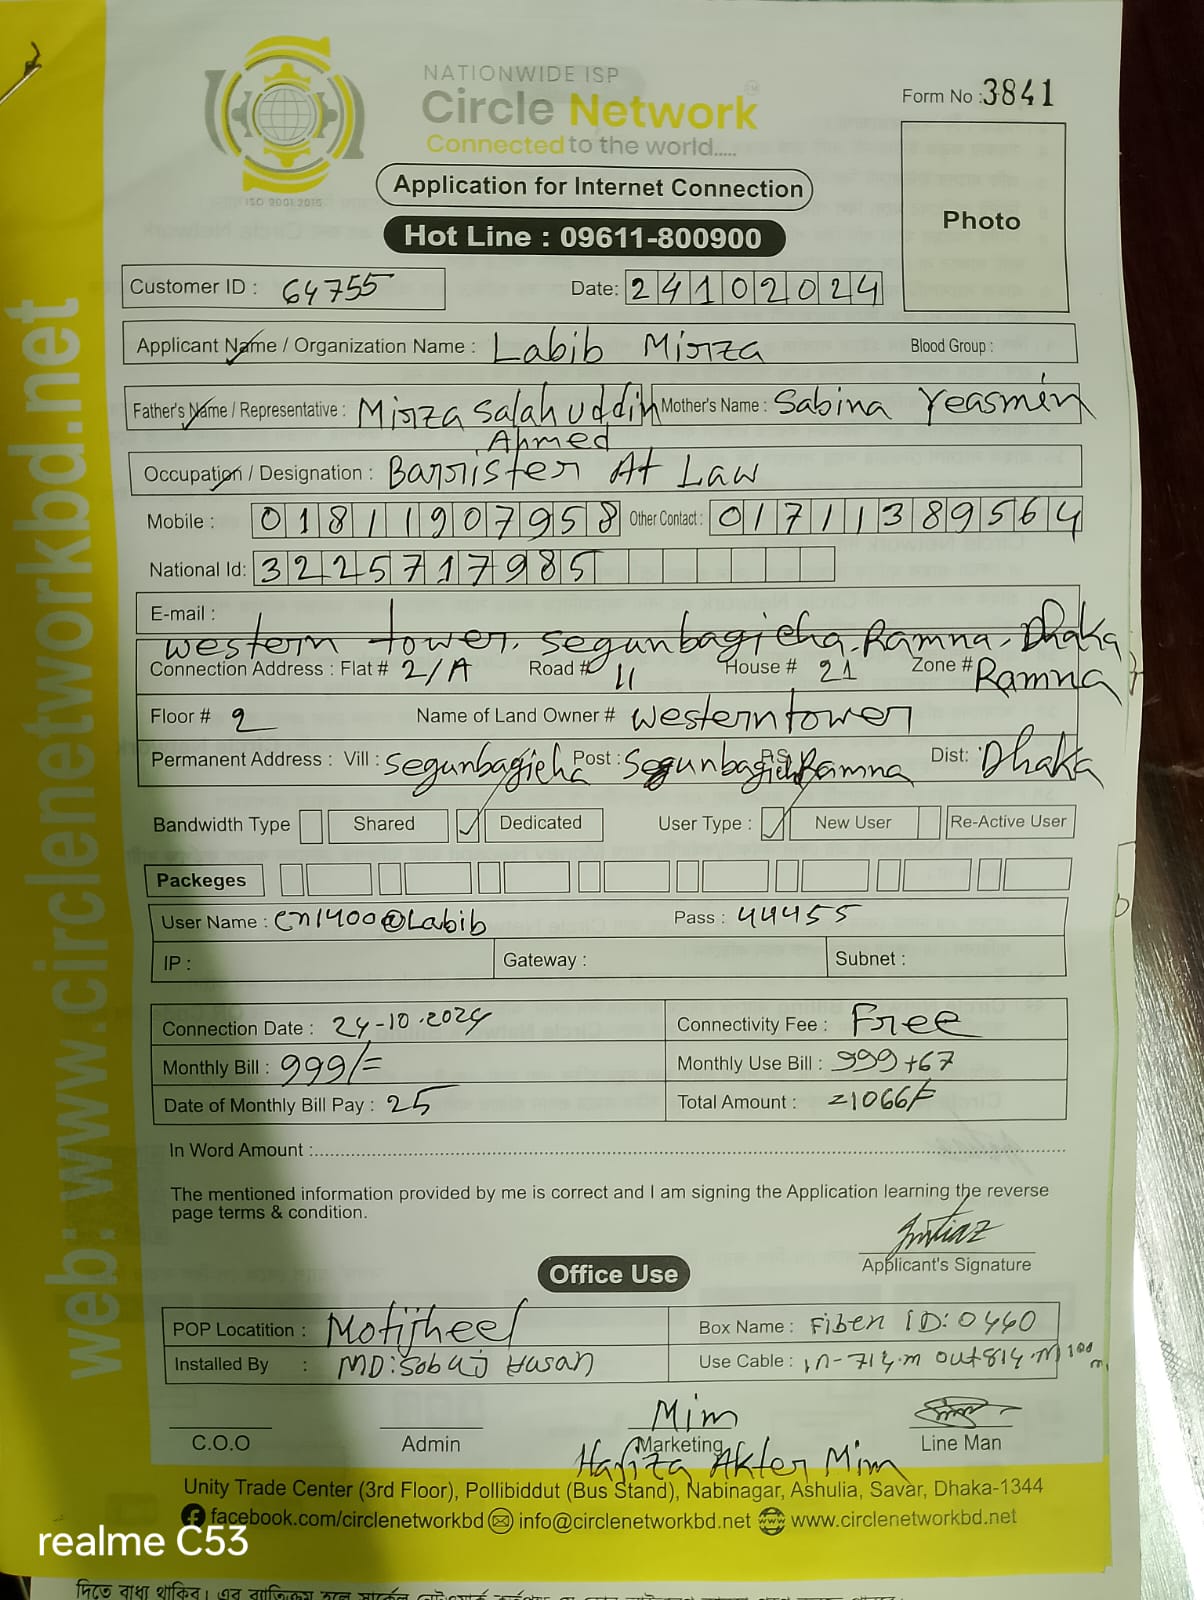 NATIONWIDE ISP
Circle Network
Connected to the world.....
ISO 9001:2015
Form No : 3841
Photo
Application for Internet Connection
Hot Line : 09611-800900
Customer ID : 64755
Date: 24102024
Applicant Name / Organization Name : Labib Mirza Blood Group :
Father's Name / Representative : Mirza Salah uddin Ahmed Mother's Name : Sabina Yeasmin
Occupation / Designation : Barrister At Law
Mobile : 01811907958 Other Contact : 01711389564
National Id: 3225717985
E-mail :
western tower, Segunbagicha, Ramna, Dhaka
Connection Address : Flat # 2/A Road # 11 House # 21 Zone # Ramna
Floor # 2 Name of Land Owner # western tower
Permanent Address : Vill : Segunbagicha Post : Segunbagicha P.S Ramna Dist: Dhaka
Bandwidth Type Shared ✓ Dedicated User Type : ✓ New User Re-Active User
Packeges
User Name : cn1400@Labib Pass : 44455
IP : Gateway : Subnet :
Connection Date : 24-10-2024 Connectivity Fee : Free
Monthly Bill : 999/= Monthly Use Bill : 999+67
Date of Monthly Bill Pay : 25 Total Amount : =1066/=
In Word Amount :
The mentioned information provided by me is correct and I am signing the Application learning the reverse
page terms & condition.
Imtiaz
Applicant's Signature
Office Use
POP Locatition : Motijheel Box Name : Fiber ID: 0440
Installed By : MD: Sobuj Hasan Use Cable : in-714.m out 814.m 100 m
Mim
C.O.O Admin Marketing Line Man
Hafiza Akter Mim
Unity Trade Center (3rd Floor), Pollibiddut (Bus Stand), Nabinagar, Ashulia, Savar, Dhaka-1344
facebook.com/circlenetworkbd info@circlenetworkbd.net www.circlenetworkbd.net
web: www.circlenetworkbd.net
realme C53